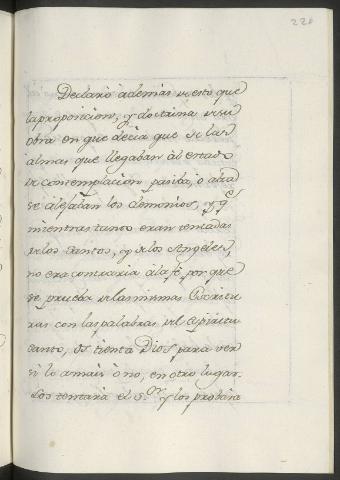 220
Declaró ademas de esto, que
la proposicion, y doctrina de su
obra en que decia que de las
almas que llegaban al estado
de contemplacion pasiba, o atad
se alejaban los demonios, y q.e
mientras tanto eran tentadas
de los Santos, y de los Angeles,
no era contraria a la fé por que
se prueba de las mismas Escritu
ras con las palabras del espiritu
santo, os tienta Dios para ver
si lo amais ó no, en otro lugar.
Los tentara el S.or y los probara